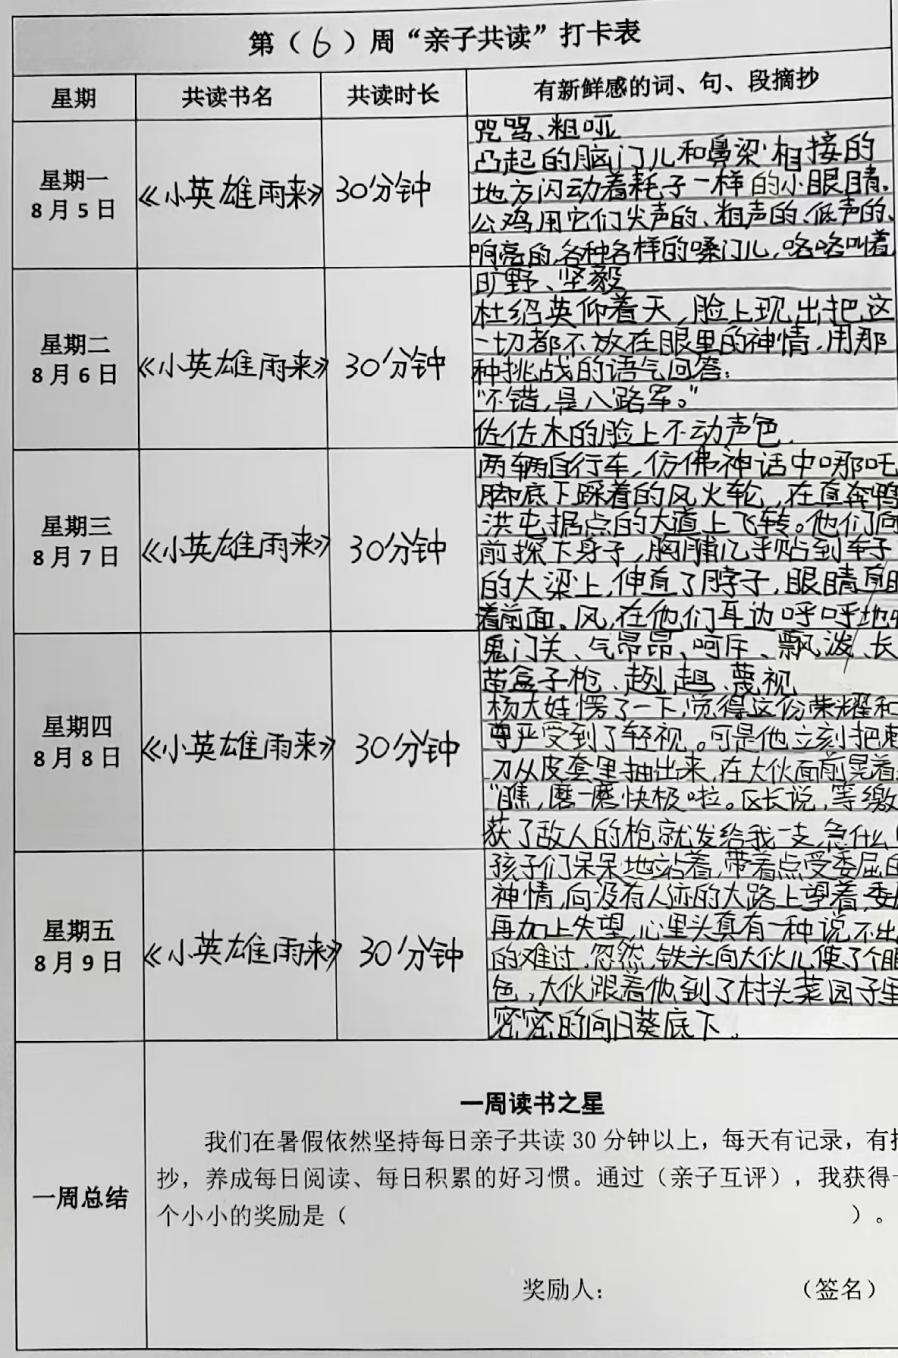 第（6）周“亲子共读”打卡表
星期 共读书名 共读时长 有新鲜感的词、句、段摘抄
星期一
8月5日
《小英雄雨来》 30分钟
咒骂、粗哑
凸起的脑门儿和鼻梁相接的
地方闪动着耗子一样的小眼睛。
公鸡用它们尖声的、粗声的、低声的、
响亮的,各种各样的嗓门儿,咯咯叫着
星期二
8月6日
《小英雄雨来》 30分钟
旷野、坚毅
杜绍英仰着天,脸上现出把这
一切都不放在眼里的神情,用那
种挑战的语气回答:
“不错,是八路军。”
佐佐木的脸上不动声色.
星期三
8月7日
《小英雄雨来》 30分钟
两辆自行车,仿佛神话中哪吒
脚底下踩着的风火轮,在直奔鸭
洪屯据点的大道上飞转。他们向
前探下身子,胸脯几乎贴到车子
的大梁上,伸直了脖子,眼睛直
着前面。风,在他们耳边呼呼地
星期四
8月8日
《小英雄雨来》 30分钟
鬼门关、气昂昂、呵斥、飘泼、长
苗盒子枪、趔趄、蔑视
杨大娃愣了一下,觉得这份荣耀和
尊严受到了轻视。可是他立刻把刺
刀从皮套里抽出来,在大伙面前晃着
“瞧,磨一磨快极啦。区长说,等缴
获了敌人的枪就发给我一支,急什么
星期五
8月9日
《小英雄雨来》 30分钟
孩子们呆呆地站着,带着点受委屈的
神情,向没有人迹的大路上望着,委
再加上失望,心里头真有一种说不出
的难过,忽然,铁头向大伙儿使了个眼
色,大伙跟着他到了村头菜园子里
密密的向日葵底下。
一周总结
一周读书之星
我们在暑假依然坚持每日亲子共读30分钟以上，每天有记录，有
抄，养成每日阅读、每日积累的好习惯。通过（亲子互评），我获得
个小小的奖励是（ ）。
奖励人： （签名）